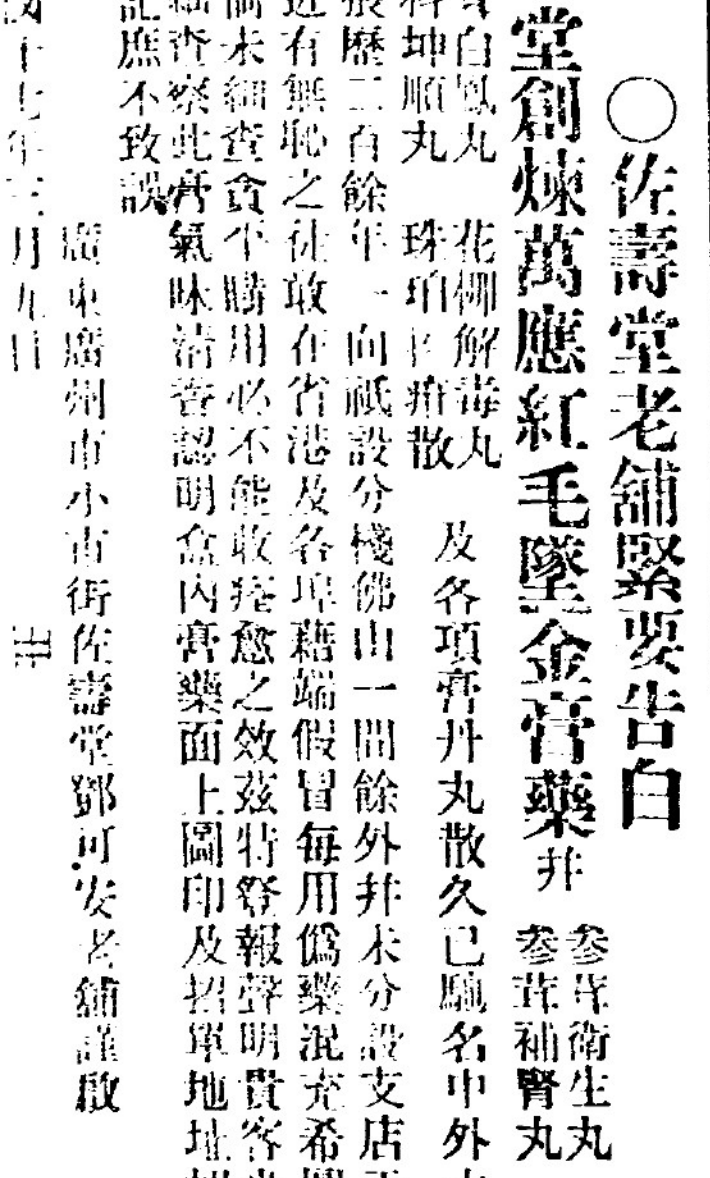 〇佐壽堂老舖緊要告白
堂創煉萬應紅毛墜金膏藥并
參茸衛生丸
參茸補腎丸
白鳳丸 花柳解毒丸
坤順丸 珠珀 疳散
及各項膏丹丸散久已馳名中外
歷二百餘年一向祇設分棧佛山一間餘外并未分設支店
近有無恥之徒敢在省港及各埠藉端假冒每用偽藥混充希
未細查貪平購用必不能收痊愈之效茲特登報聲明貴客
細查察此膏氣味清香認明盒內膏藥面上圖印及招單地址
庶不致誤
廣東廣州市小市街佐壽堂鄧可安老舖謹啟
國十七年三月九日